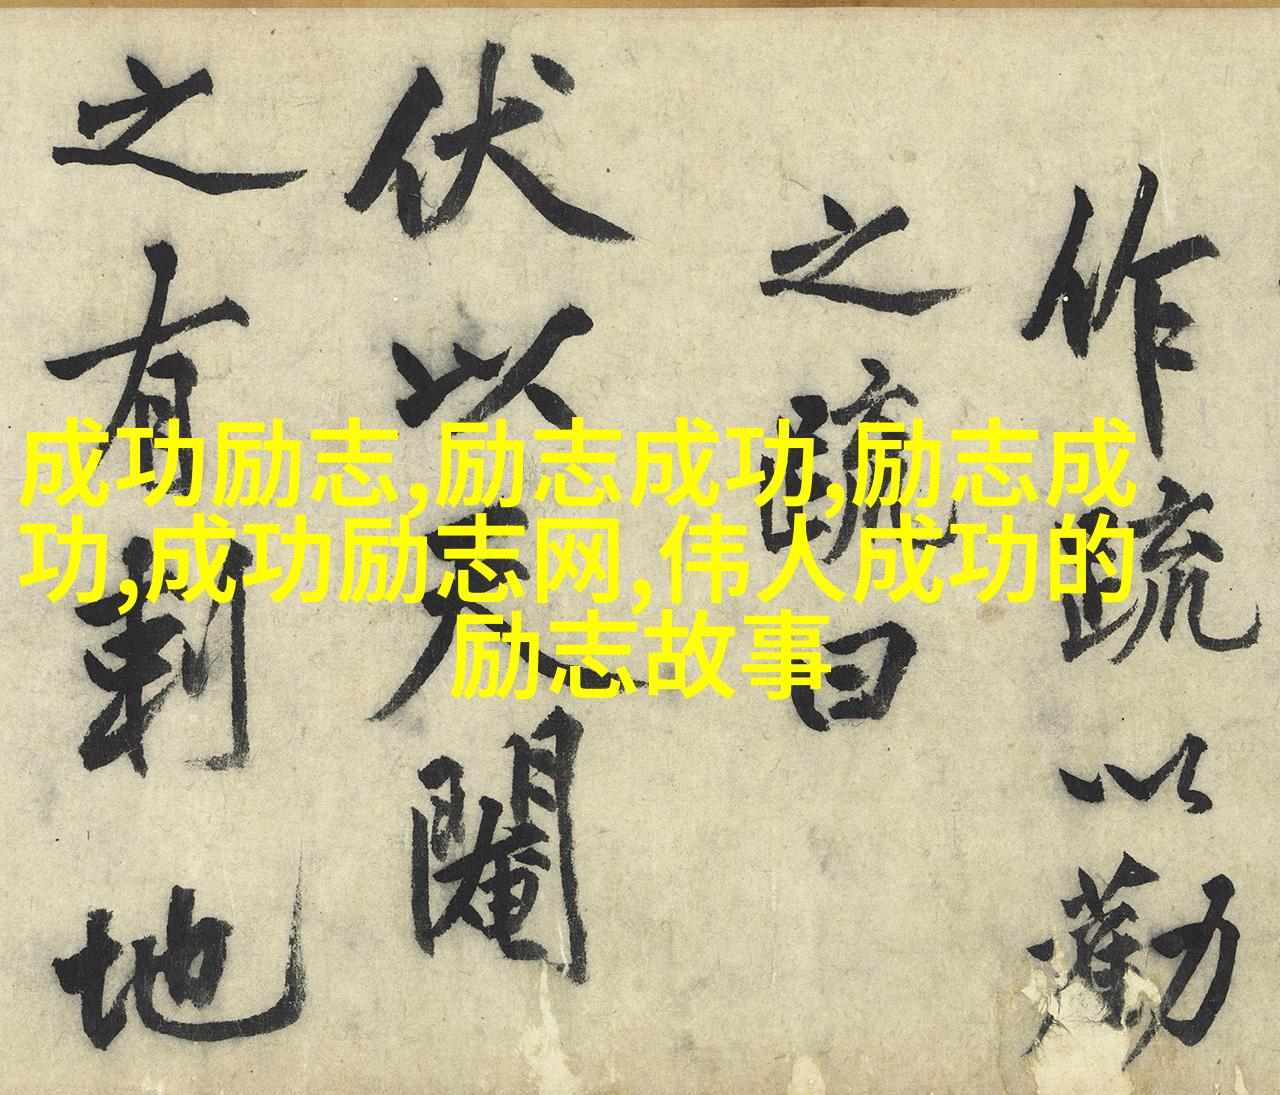 作疏以勸
之疏曰
伏以天閹
之有刺地
成功励志,励志成功,励志成
功,成功励志网,伟人成功的
励志故事